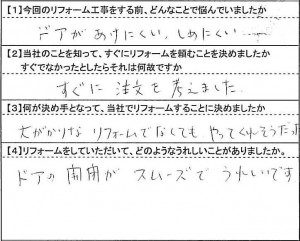 【1】今回のリフォーム工事をする前、どんなことで悩んでいましたか
ドアがあけにくい、しめにくい
【2】当社のことを知って、すぐにリフォームを頼むことを決めましたか
すぐでなかったとしたらそれは何故ですか
すぐに注文を考えました
【3】何が決め手となって、当社でリフォームすることに決めましたか
大がかりなリフォームでなくてもやってくれそうだった
【4】リフォームをしていただいて、どのようなうれしいことがありましたか。
ドアの開閉がスムーズでうれしいです